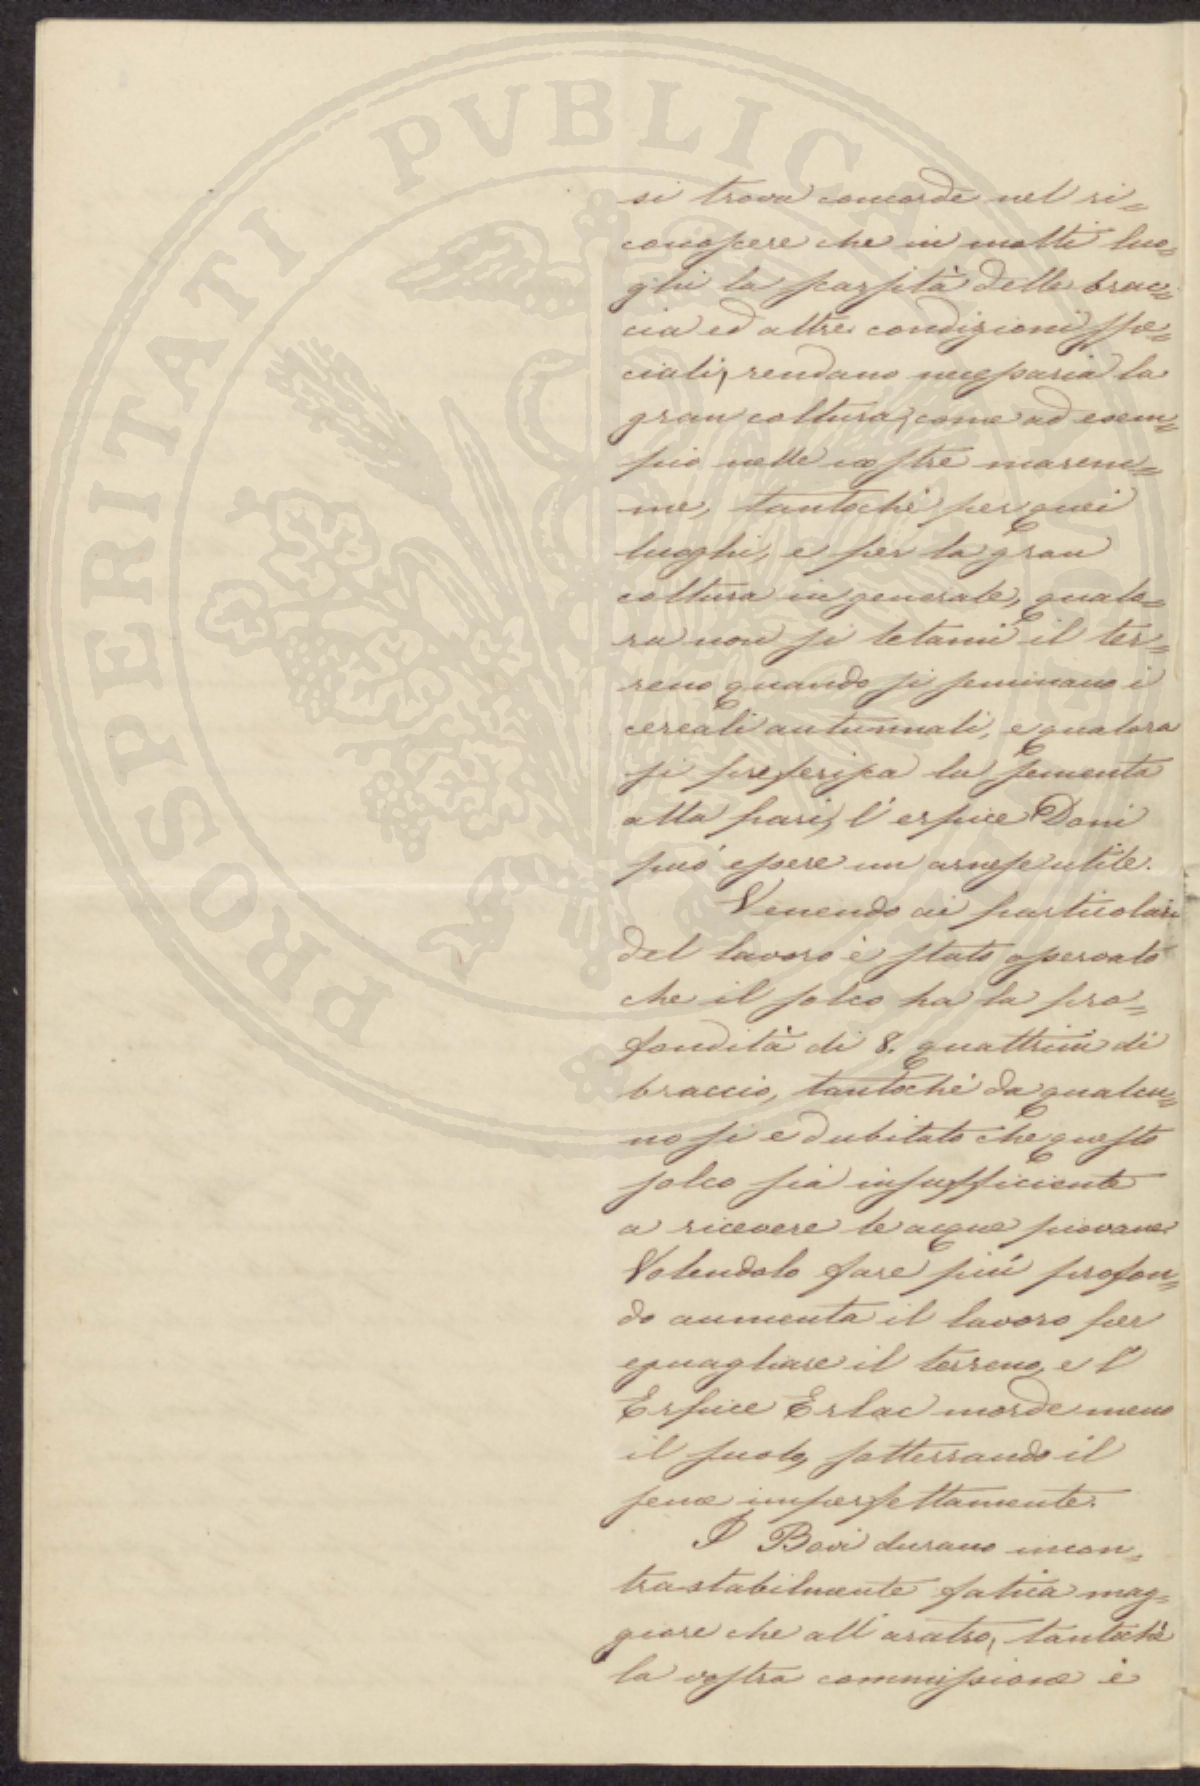 PROSPERITATI PVBLICAE
si trova concorde nel ri=
conoscere che in molti luo=
ghi la scarsità delle brac=
cia ed altre condizioni spe=
ciali, rendano necessaria la
gran coltura, come ad esem=
pio nelle nostre marem=
me, tantochè per quei
luoghi, e per la gran
coltura in generale, qualo=
ra non si letami il ter=
reno quando si seminano i
cereali autunnali, e qualora
si preferisca la sementa
alla pari, l'erpice Doni
può essere un arnese utile.
Venendo ai particolari
del lavoro è stato osservato
che il solco ha la pro=
fondità di 8. quattrini di
braccio, tantochè da qualcu=
no si e dubitato che questo
solco sia insufficiente
a ricevere le acque piovane.
Volendolo fare più profon=
do aumenta il lavoro per
eguagliare il terreno, e l'
Erpice Erlac morde meno
il suolo, sotterrando il
seme imperfettamente.
I Bovi durano incon=
trastabilmente fatica mag=
giore che all'aratro, tantochè
la vostra commissione è